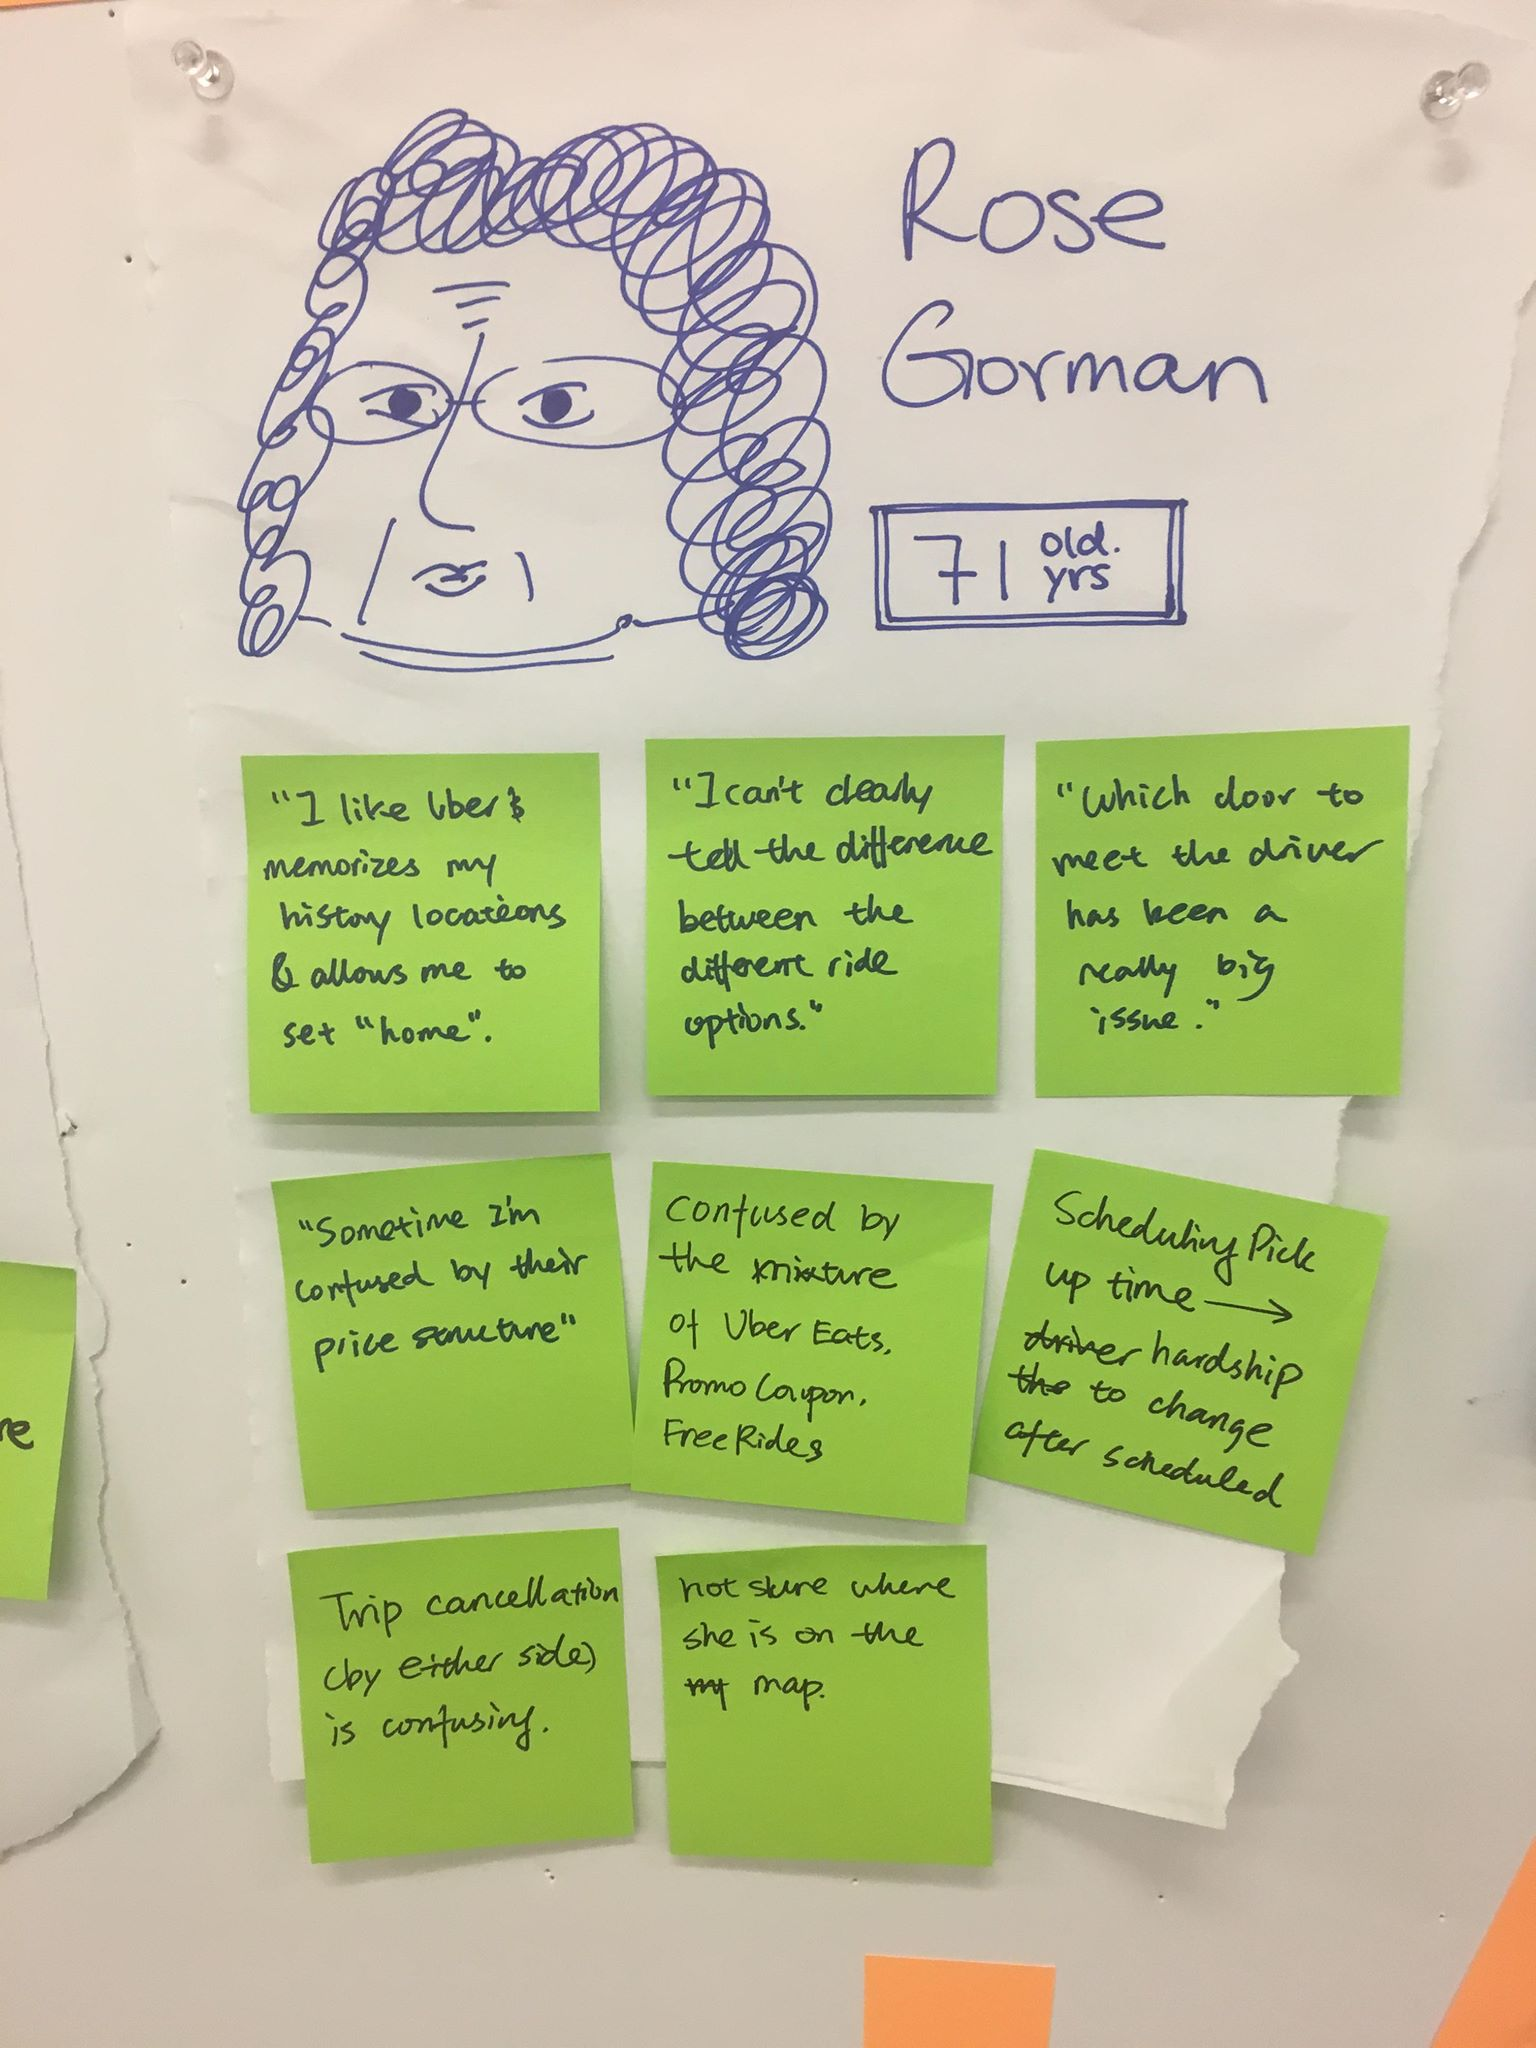 Rose
Gorman
71 old.
yrs
"I like Uber &
memorizes my
history locations
& allows me to
set "home".
"I can't clearly
tell the difference
between the
different ride
options."
"Which door to
meet the driver
has been a
really big
issue."
"Sometime I'm
confused by their
price structure"
Confused by
the mixture
of Uber Eats,
Promo Coupon,
Free Rides
Scheduling Pick
up time →
driver hardship
the to change
after scheduled
Trip cancellation
(by either side)
is confusing.
not sure where
she is on the
my map.
re